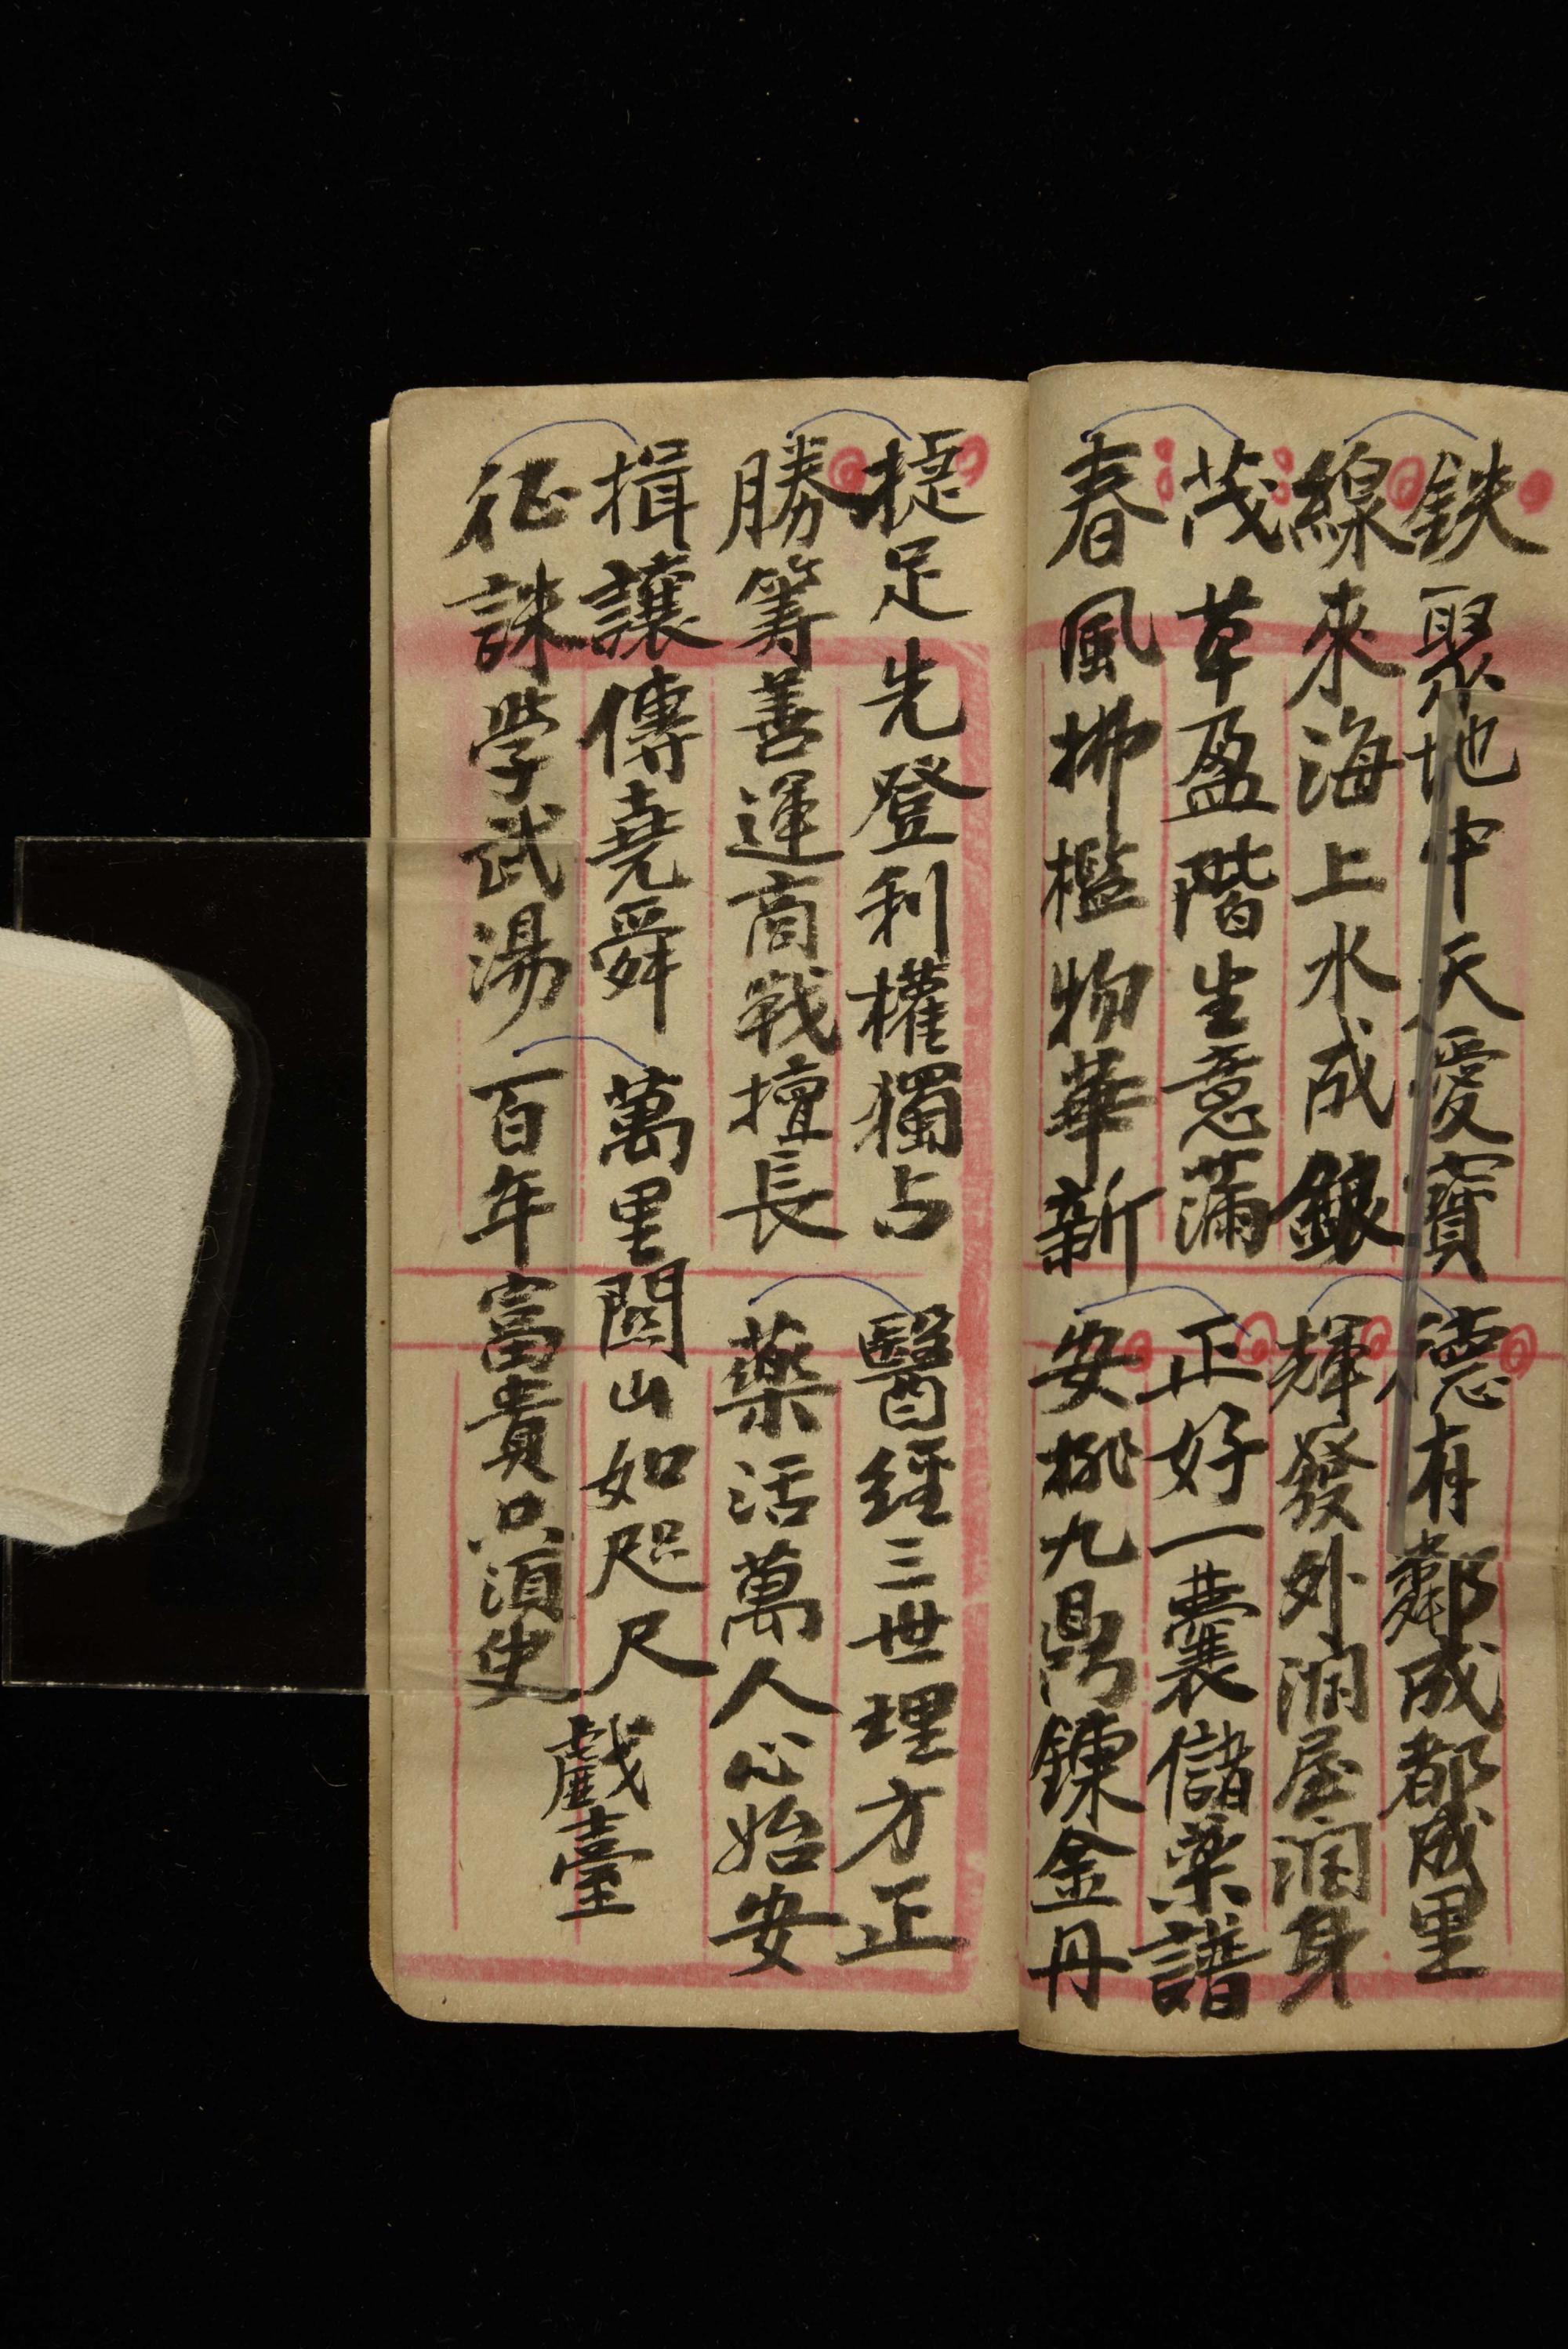 鉄聚地中天愛寶　德有鄰成都成里
線來海上水成銀　輝發外潤屋潤身
茂草盈階生意滿　正好一囊儲薬譜
春風拂檻物華新　安排九鼎鍊金丹
捷足先登利權獨占　醫經三世理方正
勝籌善運商戰擅長　薬活萬人心始安
揖讓傳堯舜　萬里關山如咫尺
征誅学武湯　百年富貴只須臾
戲臺